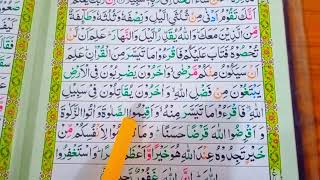 اَنَّكَ تَقُوْمُ اَدْنٰى مِنْ ثُلُثَيِ الَّيْلِ وَ نِصْفَهٗ وَ ثُلُثَهٗ وَ طَآئِفَةٌ
مِّنَ الَّذِيْنَ مَعَكَ ؕ وَ اللّٰهُ يُقَدِّرُ الَّيْلَ وَ النَّهَارَ ؕ عَلِمَ اَنْ لَّنْ
تُحْصُوْهُ فَتَابَ عَلَيْكُمْ فَاقْرَءُوْا مَا تَيَسَّرَ مِنَ الْقُرْاٰنِ ؕ عَلِمَ
اَنْ سَيَكُوْنُ مِنْكُمْ مَّرْضٰى ۙ وَ اٰخَرُوْنَ يَضْرِبُوْنَ فِي الْاَرْضِ
يَبْتَغُوْنَ مِنْ فَضْلِ اللّٰهِ ۙ وَ اٰخَرُوْنَ يُقَاتِلُوْنَ فِيْ سَبِيْلِ
اللّٰهِ ۖ فَاقْرَءُوْا مَا تَيَسَّرَ مِنْهُ ۙ وَ اَقِيْمُوا الصَّلٰوةَ وَ اٰتُوا الزَّكٰوةَ
وَ اَقْرِضُوا اللّٰهَ قَرْضًا حَسَنًا ؕ وَ مَا تُقَدِّمُوْا لِاَنْفُسِكُمْ مِّنْ
خَيْرٍ تَجِدُوْهُ عِنْدَ اللّٰهِ هُوَ خَيْرًا وَّ اَعْظَمَ اَجْرًا ؕ وَ اسْتَغْفِرُوا
اللّٰهَ ؕ اِنَّ اللّٰهَ غَفُوْرٌ